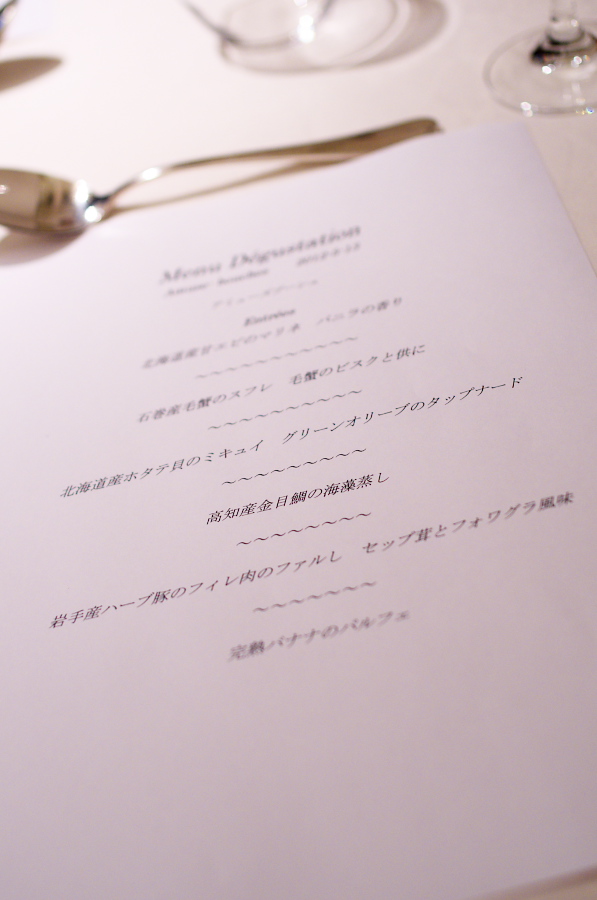 Menu Dégustation
Amuse-bouches
アミューズブーシュ
Entrées
北海道産甘エビのマリネ　バニラの香り
～～～～～～～～～～～
石巻産毛蟹のスフレ　毛蟹のビスクと供に
～～～～～～～～～～
北海道産ホタテ貝のミキュイ　グリーンオリーブのタップナード
～～～～～～～～～
高知産金目鯛の海藻蒸し
～～～～～～～～
岩手産ハーブ豚のフィレ肉のファルし　セップ茸とフォワグラ風味
～～～～～～～
完熟バナナのパルフェ